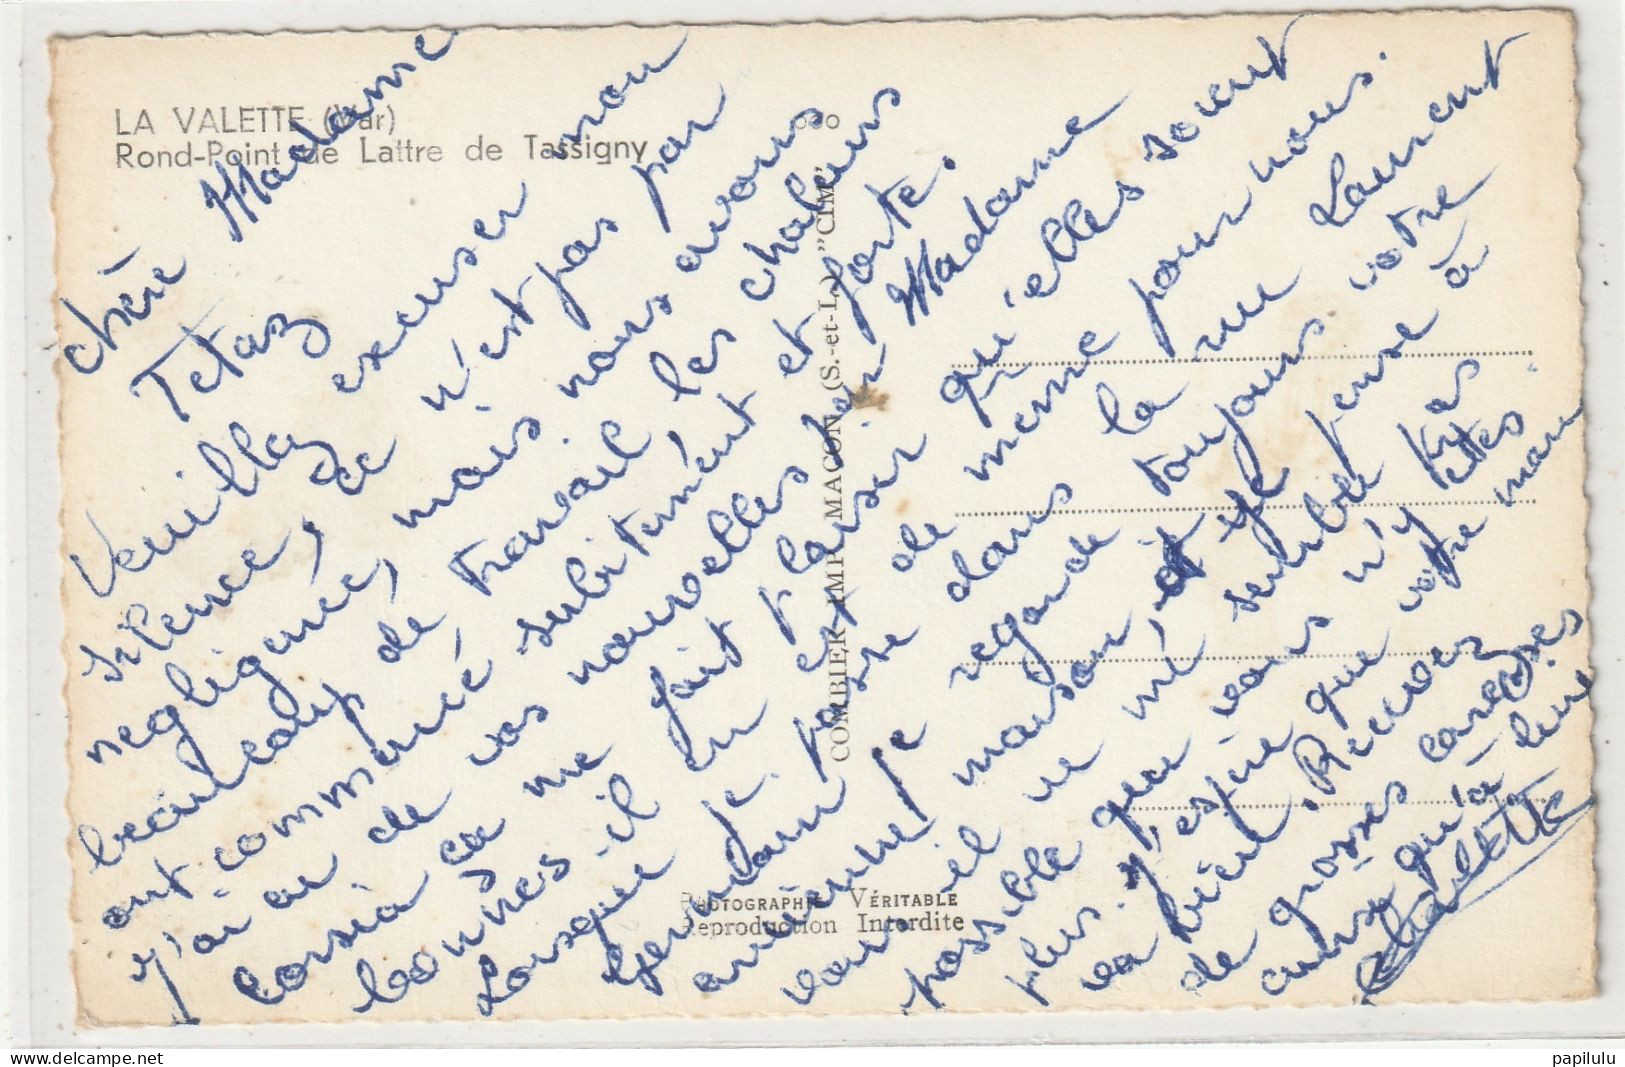 LA VALETTE (Var)
Rond-Point de Lattre de Tassigny
COMBIER IMP. MACON (S.-et-L.) "CIM"
PHOTOGRAPHIE VÉRITABLE
Reproduction Interdite
chère Madame
Tetaz
Veuillez excuser mon
silence, ce n'est pas par
négligence, mais nous avons
beaucoup de travail les chaleurs
ont commencé subitement et forte.
j'ai eu de vos nouvelles par Madame
ce me fait plaisir qu'elles soient
bonnes - il en est de même pour nous.
Lorsque je passe dans la rue Laurent
je regarde toujours votre
ancienne maison, et je pense à
vous - il ne me semble pas
possible que vous n'y êtes
plus. J'espère que votre mari
va bien. Recevez
de grosses caresses
ainsi qu'à lui
papilulu
delcampe.net